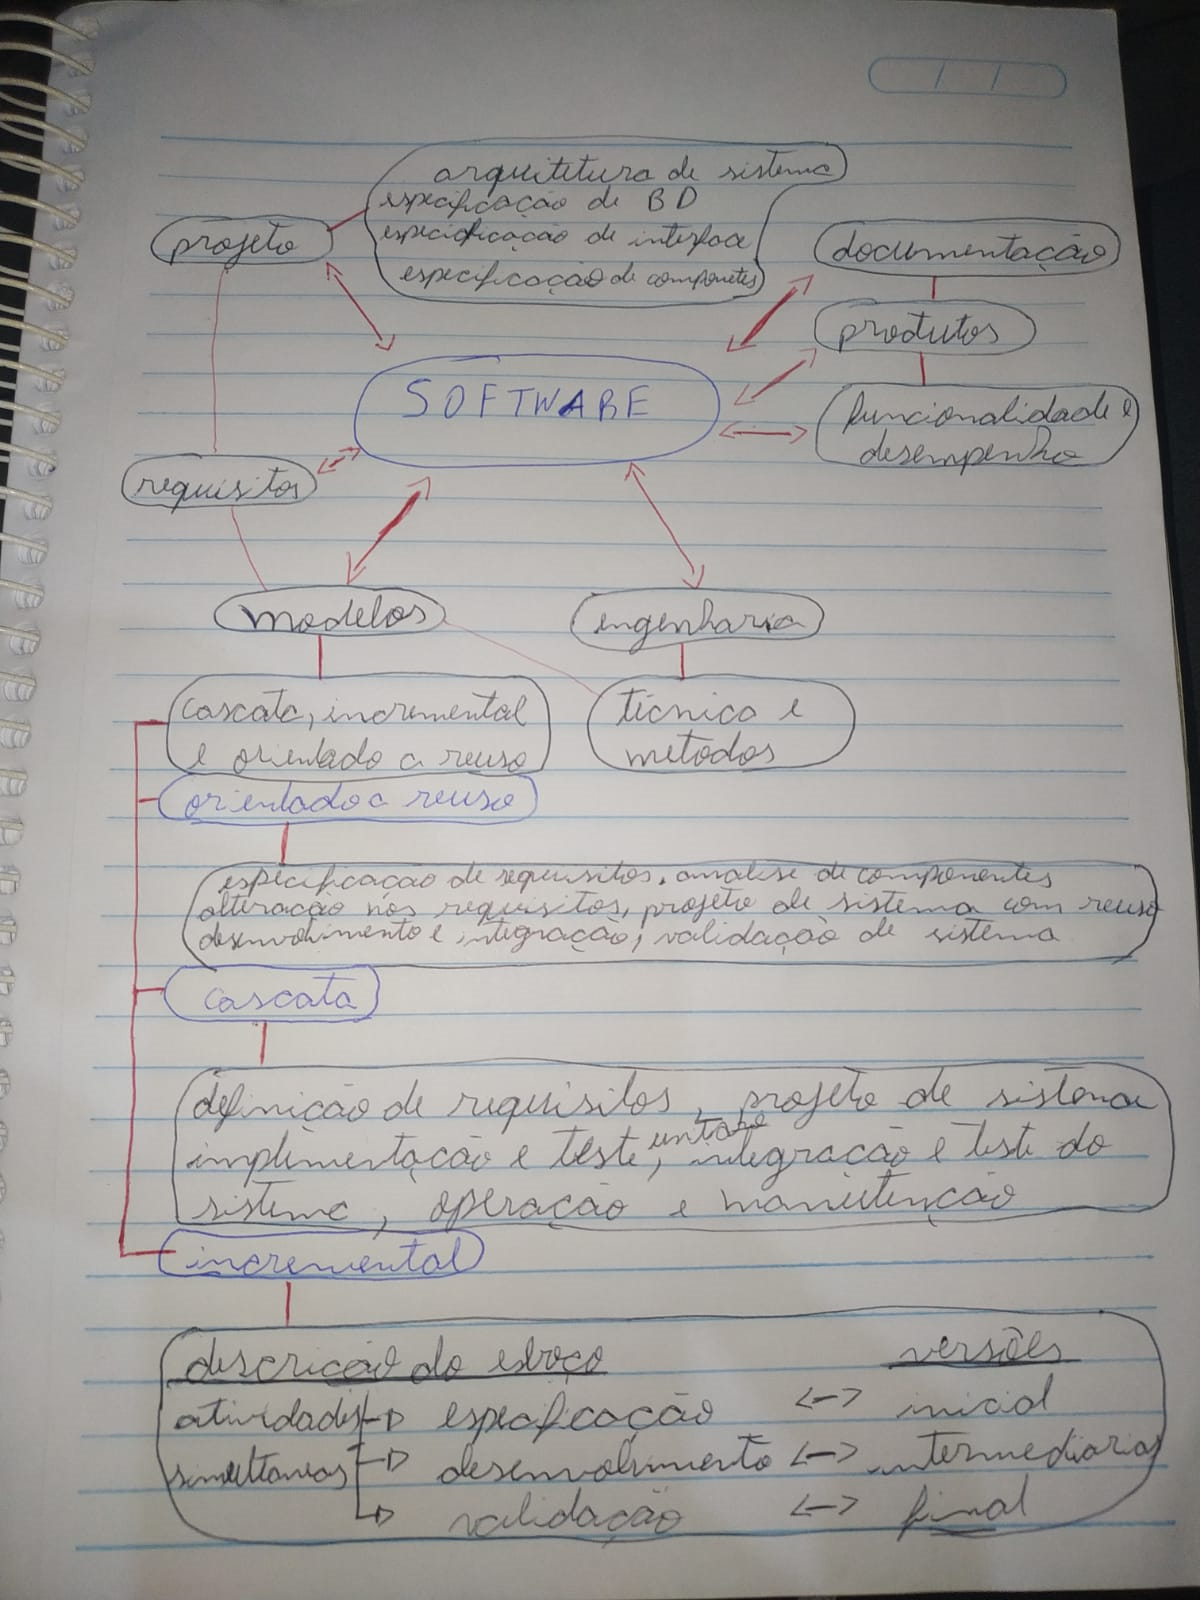 arquitetura de sistema
especificação de BD
projeto
especificação de interface
documentação
especificação de componetes
produtos
SOFTWARE
funcionalidade e
desempenho
requisitos
modelos
engenharia
cascata, incremental
e orientado a reuso
técnica e
metodos
orientado a reuso
especificação de requisitos, analise de componentes
alteração nos requisitos, projeto de sistema com reuso
desenvolvimento e integração, validação de sistema
cascata
definição de requisitos, projeto de sistema
implementação e teste, integração e teste do
sistema, operação e manutenção
incremental
descrição do esboço versões
atividades especificação <-> inicial
simultaneas desenvolvimento <-> intermediarias
validação <-> final